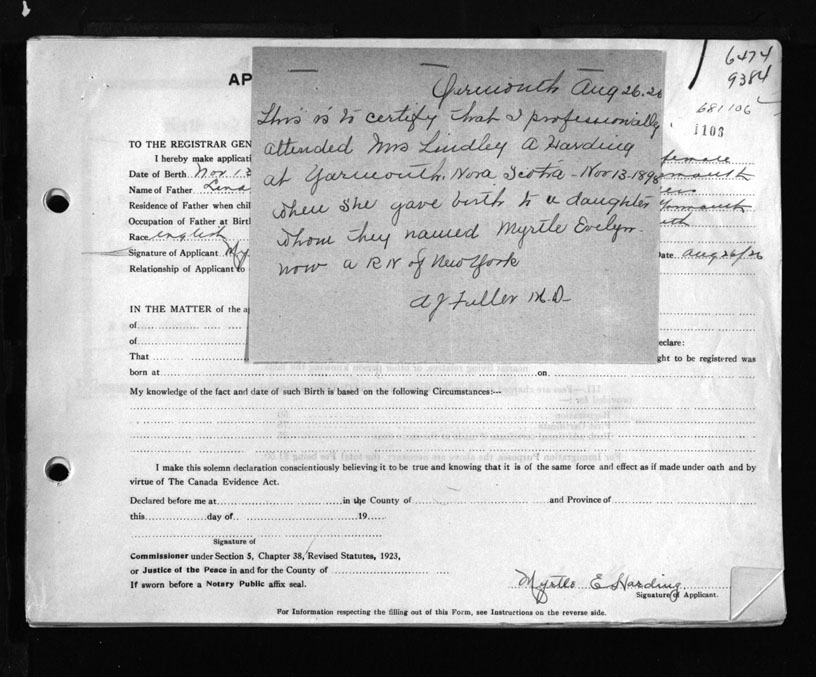 6474
9384
681106
1103
AP
Yarmouth Aug 26.26
This is to certify that I professionally
attended Mrs Lindley A Harding
at Yarmouth, Nova Scotia - Nov 13-1898
when she gave birth to a daughter
whom they named Myrtle Evelyn
now a RN of New York
A J Fuller M.D-
TO THE REGISTRAR GEN
I hereby make applicati female
Date of Birth Nov 13
Name of Father Lind
Residence of Father when chil
Occupation of Father at Birt
Race English
Signature of Applicant My Date Aug 26/26
Relationship of Applicant to
IN THE MATTER of the a
of
of eclare:
That ght to be registered was
born at on
My knowledge of the fact and date of such Birth is based on the following Circumstances:—
I make this solemn declaration conscientiously believing it to be true and knowing that it is of the same force and effect as if made under oath and by
virtue of The Canada Evidence Act.
Declared before me at in the County of and Province of
this day of 19
Signature of
Commissioner under Section 5, Chapter 38, Revised Statutes, 1923,
or Justice of the Peace in and for the County of
If sworn before a Notary Public affix seal.
Myrtle E Harding
Signature of Applicant.
For Information respecting the filling out of this Form, see Instructions on the reverse side.